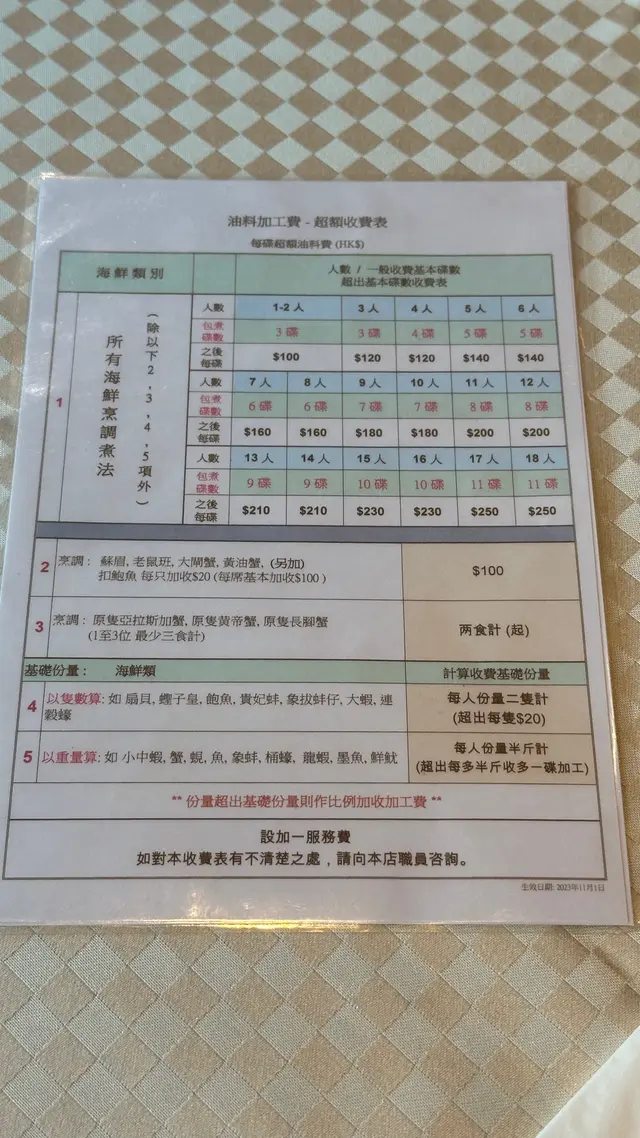 油料加工費 - 超額收費表
每碟超額油料費 (HK$)
海鮮類別
人數 / 一般收費基本碟數
超出基本碟數收費表
1
所有海鮮烹調煮法
(除以下2,3,4,5項外)
人數 1-2 人 3 人 4 人 5 人 6 人
包煮碟數 3 碟 3 碟 4 碟 5 碟 5 碟
之後每碟 $100 $120 $120 $140 $140
人數 7 人 8 人 9 人 10 人 11 人 12 人
包煮碟數 6 碟 6 碟 7 碟 7 碟 8 碟 8 碟
之後每碟 $160 $160 $180 $180 $200 $200
人數 13 人 14 人 15 人 16 人 17 人 18 人
包煮碟數 9 碟 9 碟 10 碟 10 碟 11 碟 11 碟
之後每碟 $210 $210 $230 $230 $250 $250
2 烹調 : 蘇眉, 老鼠斑, 大閘蟹, 黃油蟹, (另加)
扣鮑魚 每只加收$20 (每席基本加收$100 )
$100
3 烹調 : 原隻亞拉斯加蟹, 原隻黄帝蟹, 原隻長腳蟹
(1至3位 最少三食計)
两食計 (起)
基礎份量 : 海鮮類 計算收費基礎份量
4 以隻數算: 如 扇貝, 蟶子皇, 鮑魚, 貴妃蚌, 象拔蚌仔, 大蝦, 連
殼蠔
每人份量二隻計
(超出每隻$20)
5 以重量算: 如 小中蝦, 蟹, 蜆, 魚, 象蚌, 桶蠔, 龍蝦, 墨魚, 鮮魷
每人份量半斤計
(超出每多半斤收多一碟加工)
** 份量超出基礎份量則作比例加收加工費 **
設加一服務費
如對本收費表有不清楚之處，請向本店職員咨詢。
生效日期: 2023年11月1日